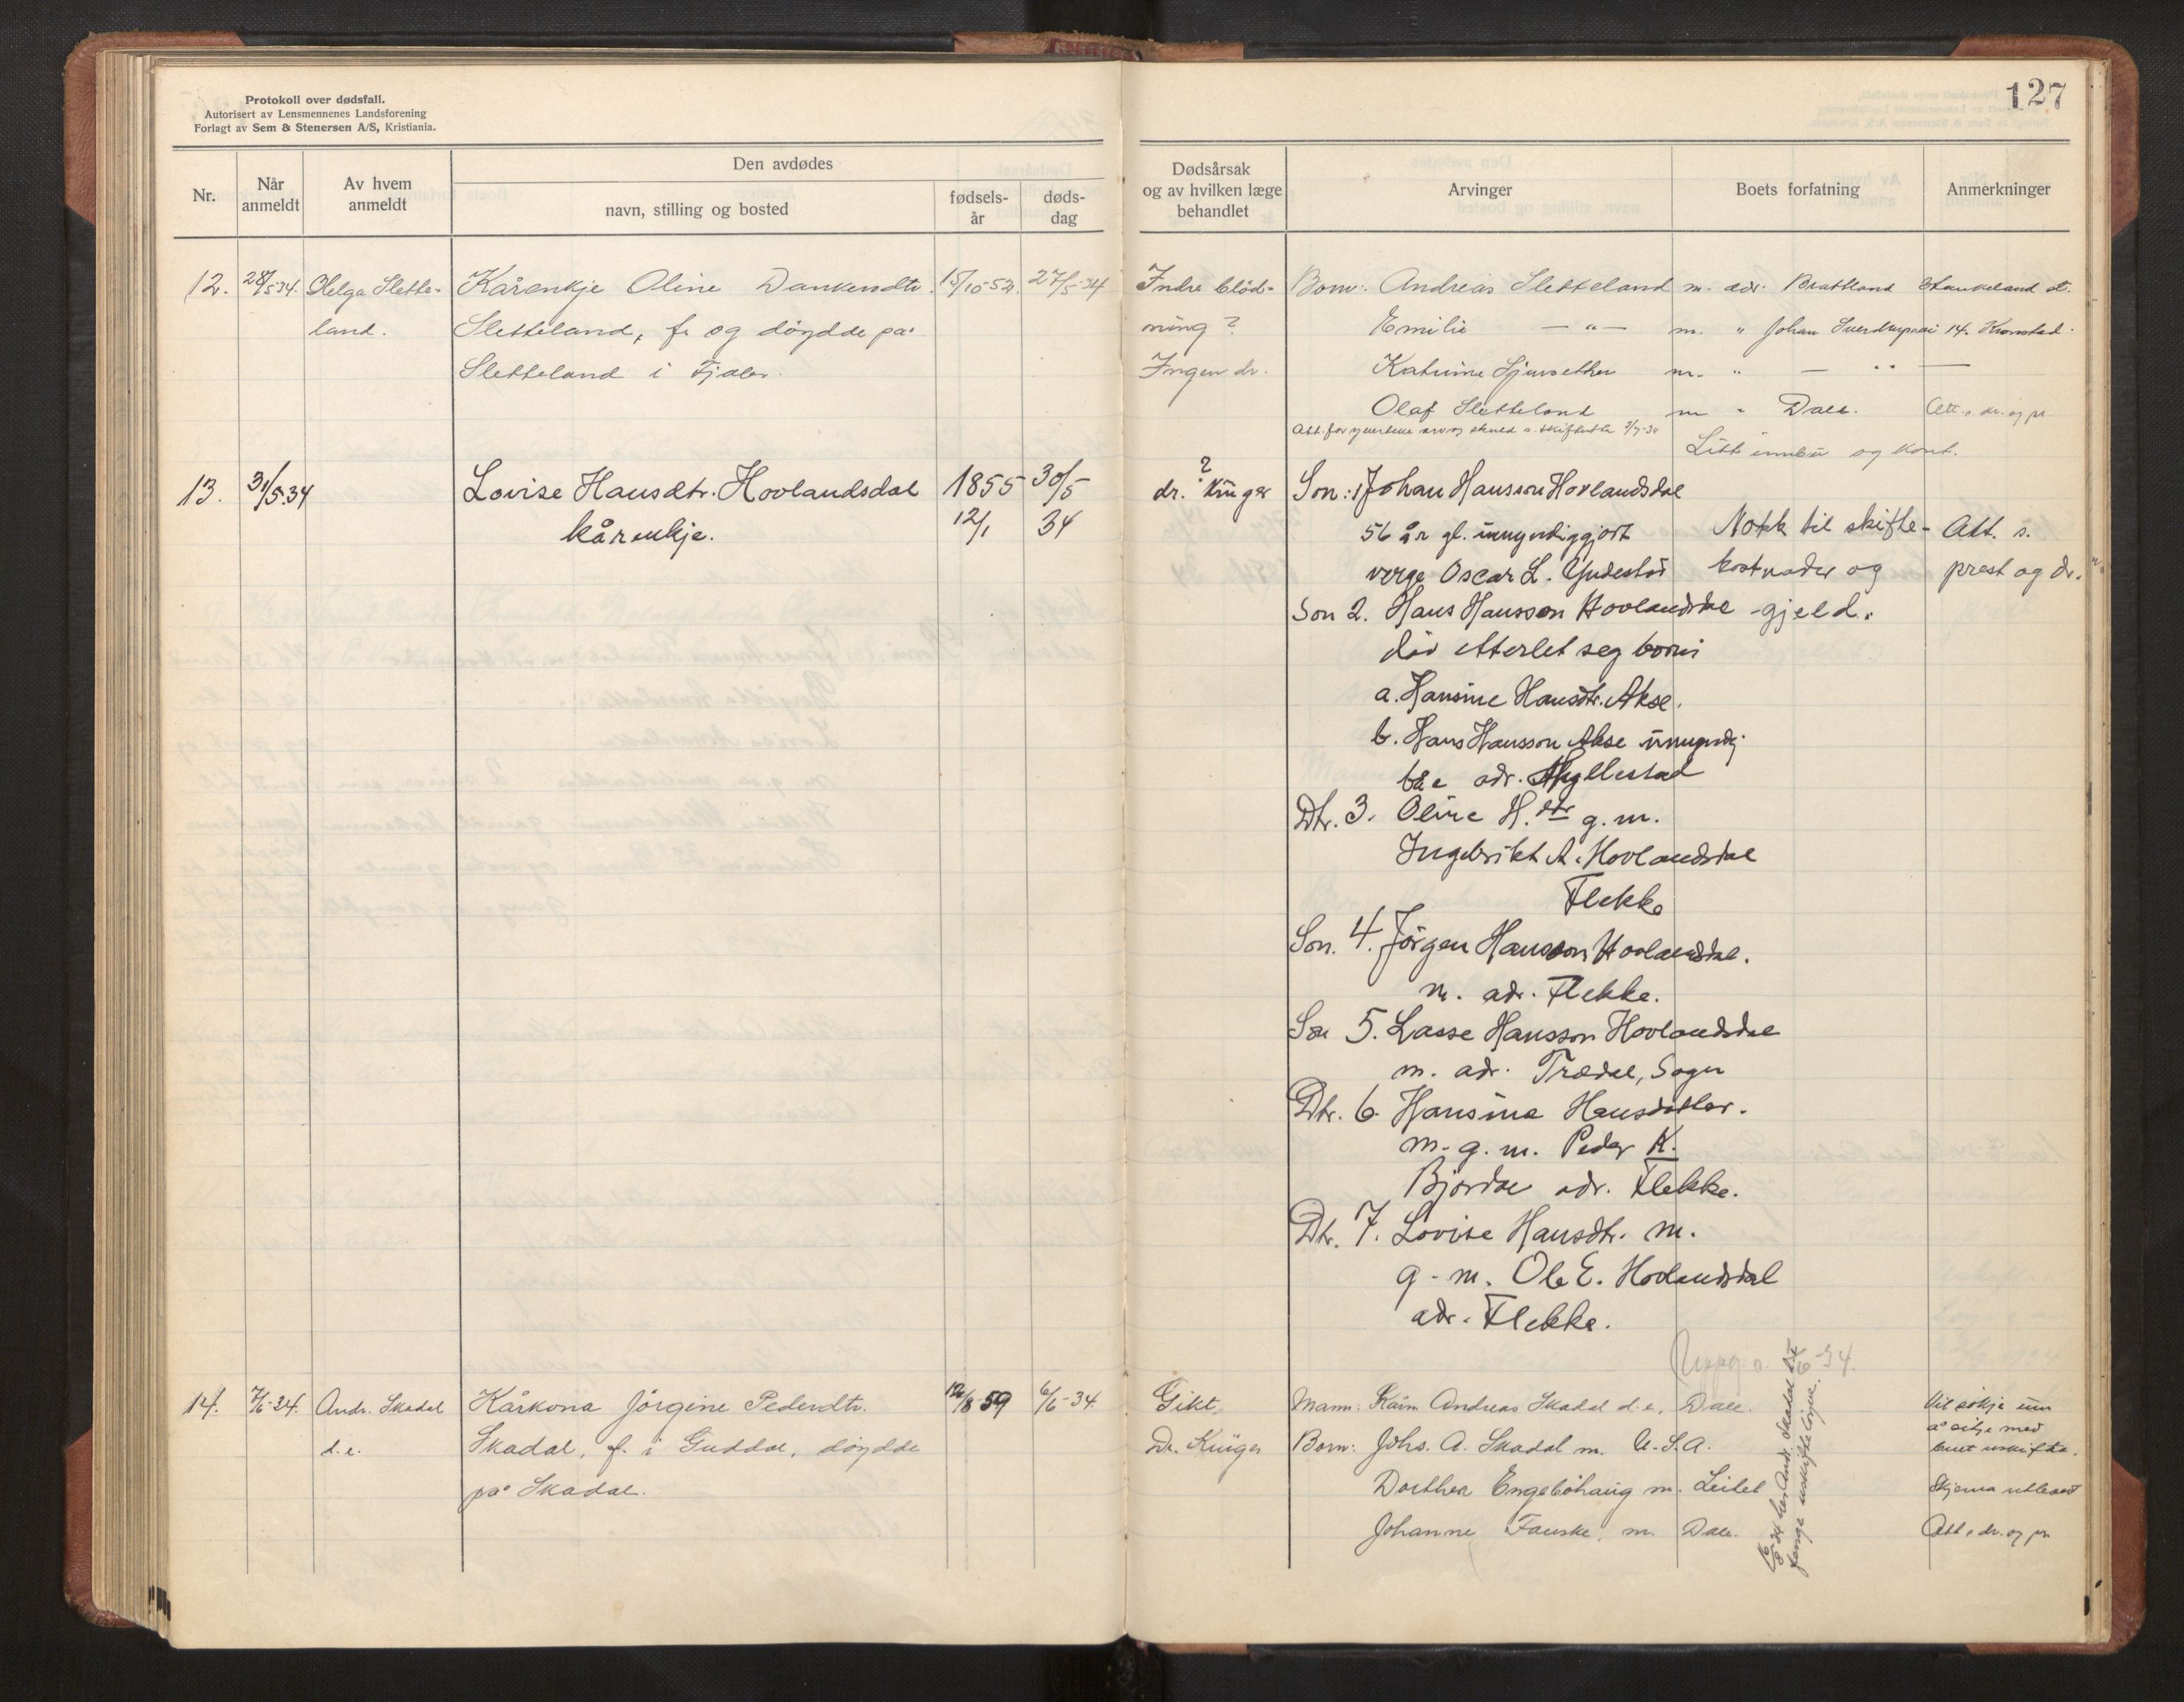 Protokoll over dødsfall.
Autorisert av Lensmennenes Landsforening
Forlagt av Sem & Stenersen A/S, Kristiania.
127
Nr.
Når anmeldt
Av hvem anmeldt
Den avdødes
navn, stilling og bosted
fødsels-år
døds-dag
Dødsårsak og av hvilken læge behandlet
Arvinger
Boets forfatning
Anmerkninger
12. 28/5-34. Helga Slette- Kårenkje Oline Dankerdtr. 15/10-52. 27/5-34 Indre blöd- Born: Andreas Sletteland m. adr. Brattland Haukeland st.
land. Sletteland, f. og döydde på ning? Emilie —"— m. " Johan Sverdrupsvei 14. Kronstad.
Sletteland i Fjaler. Ingen dr. Katrine m. " — " —
Olaf Sletteland m " Dale. Att. s. dr. og pr.
Att. for arv og skuld s. skifteretten 3/7-34
Litt innbu og kont.
13. 31/5 34 Lovise Hansdtr. Hovlandsdal 1855 30/5 ? Son: 1 Johan Hansson Hovlandsdal
kårenkje. 12/1 34 dr. Krüger
56 år gl. umyndiggjort Nokk til skifte- Att. s.
verge Oscar L. Yndestad kostnader og prest og dr.
Son 2. Hans Hansson Hovlandsdal gjeld.
död etterlet seg born:
a. Hansine Hansdtr. Akse.
b. Hans Hansson Akse umyndig
adr. Hyllestad
Dtr. 3. Oline H. dtr g. m.
Ingebrikt A. Hovlandsdal
Flekke
Son. 4. Jörgen Hansson Hovlandsdal.
m. adr. Flekke.
Son 5. Lasse Hansson Hovlandsdal
m. adr. Trædal, Sogn
Dtr. 6. Hansina Hansdotter.
m. g. m. Peder K.
Bjordal adr. Flekke.
Dtr. 7. Lovise Hansdtr. m.
g. m. Ole E. Hovlandsdal
adr. Flekke.
Uppg. s. /6-34.
14. 7/6-34. Andr. Skadal Kårkona Jörgine Pedersdtr. 12/8 59 6/6-34. Gikt. Mann: Kårm Andreas Skadal d.e. Dale. Vil sökja um
d.e. Skadal, f. i Guddal, döydde Dr. Krüger Born: Johs. A. Skadal m. U.S.A. å sitja med
buet uskifta.
på Skadal. Dorthea Engeböhaug m. Leitet Skjema utlevert
Johanne Fauske. m. Dale. Att. s. dr. og pr.
34 her Andr. Skadal d.e.
fenge uskifteløyve.